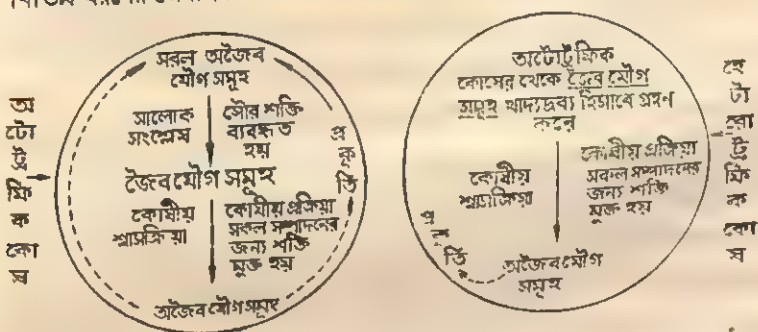 সরল অজৈব
যৌগ সমূহ
সালোক
সংশ্লেষ
সৌর শক্তি
ব্যবহৃত
হয়
জৈবযৌগ সমূহ
কোষীয়
শ্বাসক্রিয়া
কোষীয় প্রক্রিয়া
সকল সম্পাদনের
জন্য শক্তি
মুক্ত হয়
অজৈব যৌগ সমূহ
প্রকৃতি
অটোট্রফিক কোষ
অটোট্রফিক
কোষের থেকে জৈব যৌগ
সমূহ খাদ্যদ্রব্য হিসাবে গ্রহণ
করে
কোষীয়
শ্বাসক্রিয়া
কোষীয় প্রক্রিয়া
সকল সম্পাদনের
জন্য শক্তি
মুক্ত হয়
অজৈবযৌগ
সমূহ
প্রকৃতি
হেটারোট্রফিক কোষ